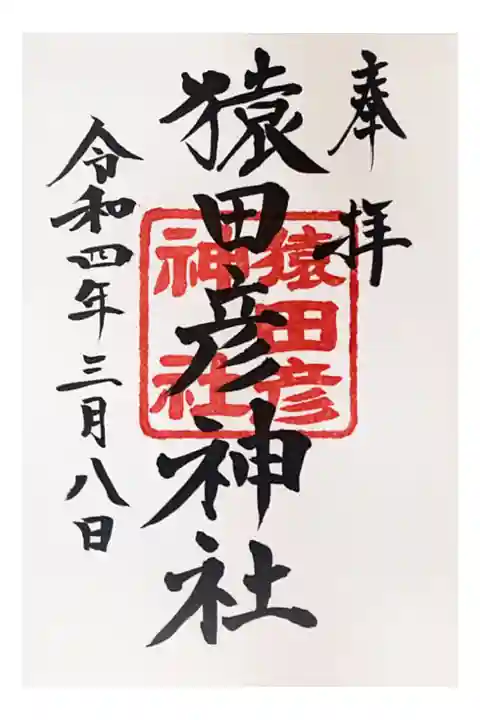 奉拝
猿田彦神社
猿田彦
神社
令和四年三月八日